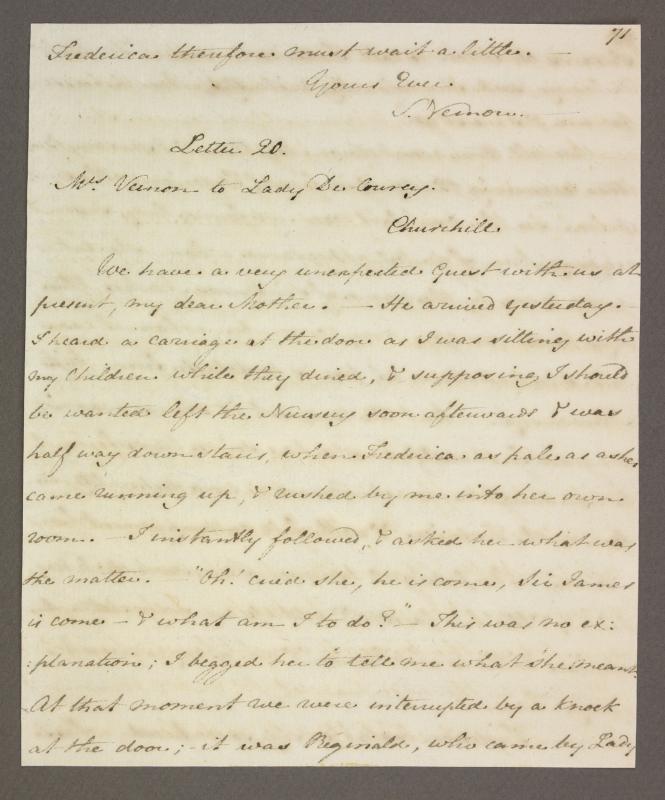 71
Frederica therefore must wait a little. —
Yours Ever.
S. Vernon. —
Letter 20.
Mrs. Vernon to Lady De Courcy.
Churchill.
We have a very unexpected Guest with us at
present, my dear Mother. — He arrived yesterday. —
I heard a carriage at the door as I was sitting with
my Children while they dined, & supposing I should
be wanted left the Nursery soon afterwards & was
half way down stairs, when Frederica as pale as ashes
came running up, & rushed by me into her own
room. — I instantly followed, & asked her what was
the matter. — "Oh! cried she, he is come, Sir James
is come — & what am I to do?" — This was no ex:
:planation; I begged her to tell me what she meant.
At that moment we were interrupted by a knock
at the door; — it was Reginald, who came by Lady